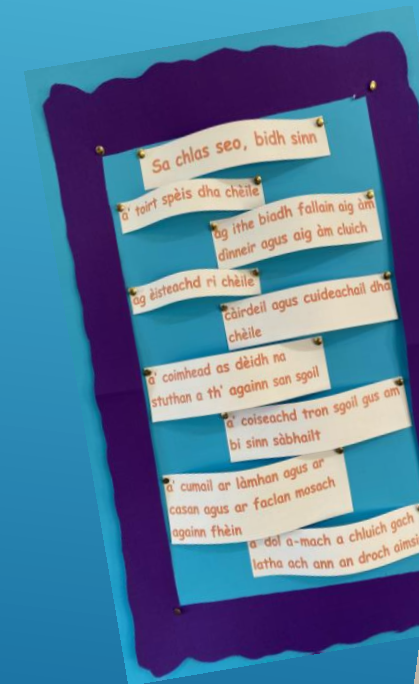 Sa chlas seo, bidh sinn
a' toirt spèis dha chèile
ag ithe biadh fallain aig àm
dinneir agus aig àm cluich
ag èisteachd ri chèile
càirdeil agus cuideachail dha
chèile
a' coimhead as dèidh na
stuthan a th' againn san sgoil
a' coiseachd tron sgoil gus am
bi sinn sàbhailt
a' cumail ar làmhan agus ar
casan agus ar faclan mosach
againn fhèin
a dol a-mach a chluich gach
latha ach ann an droch aimsi